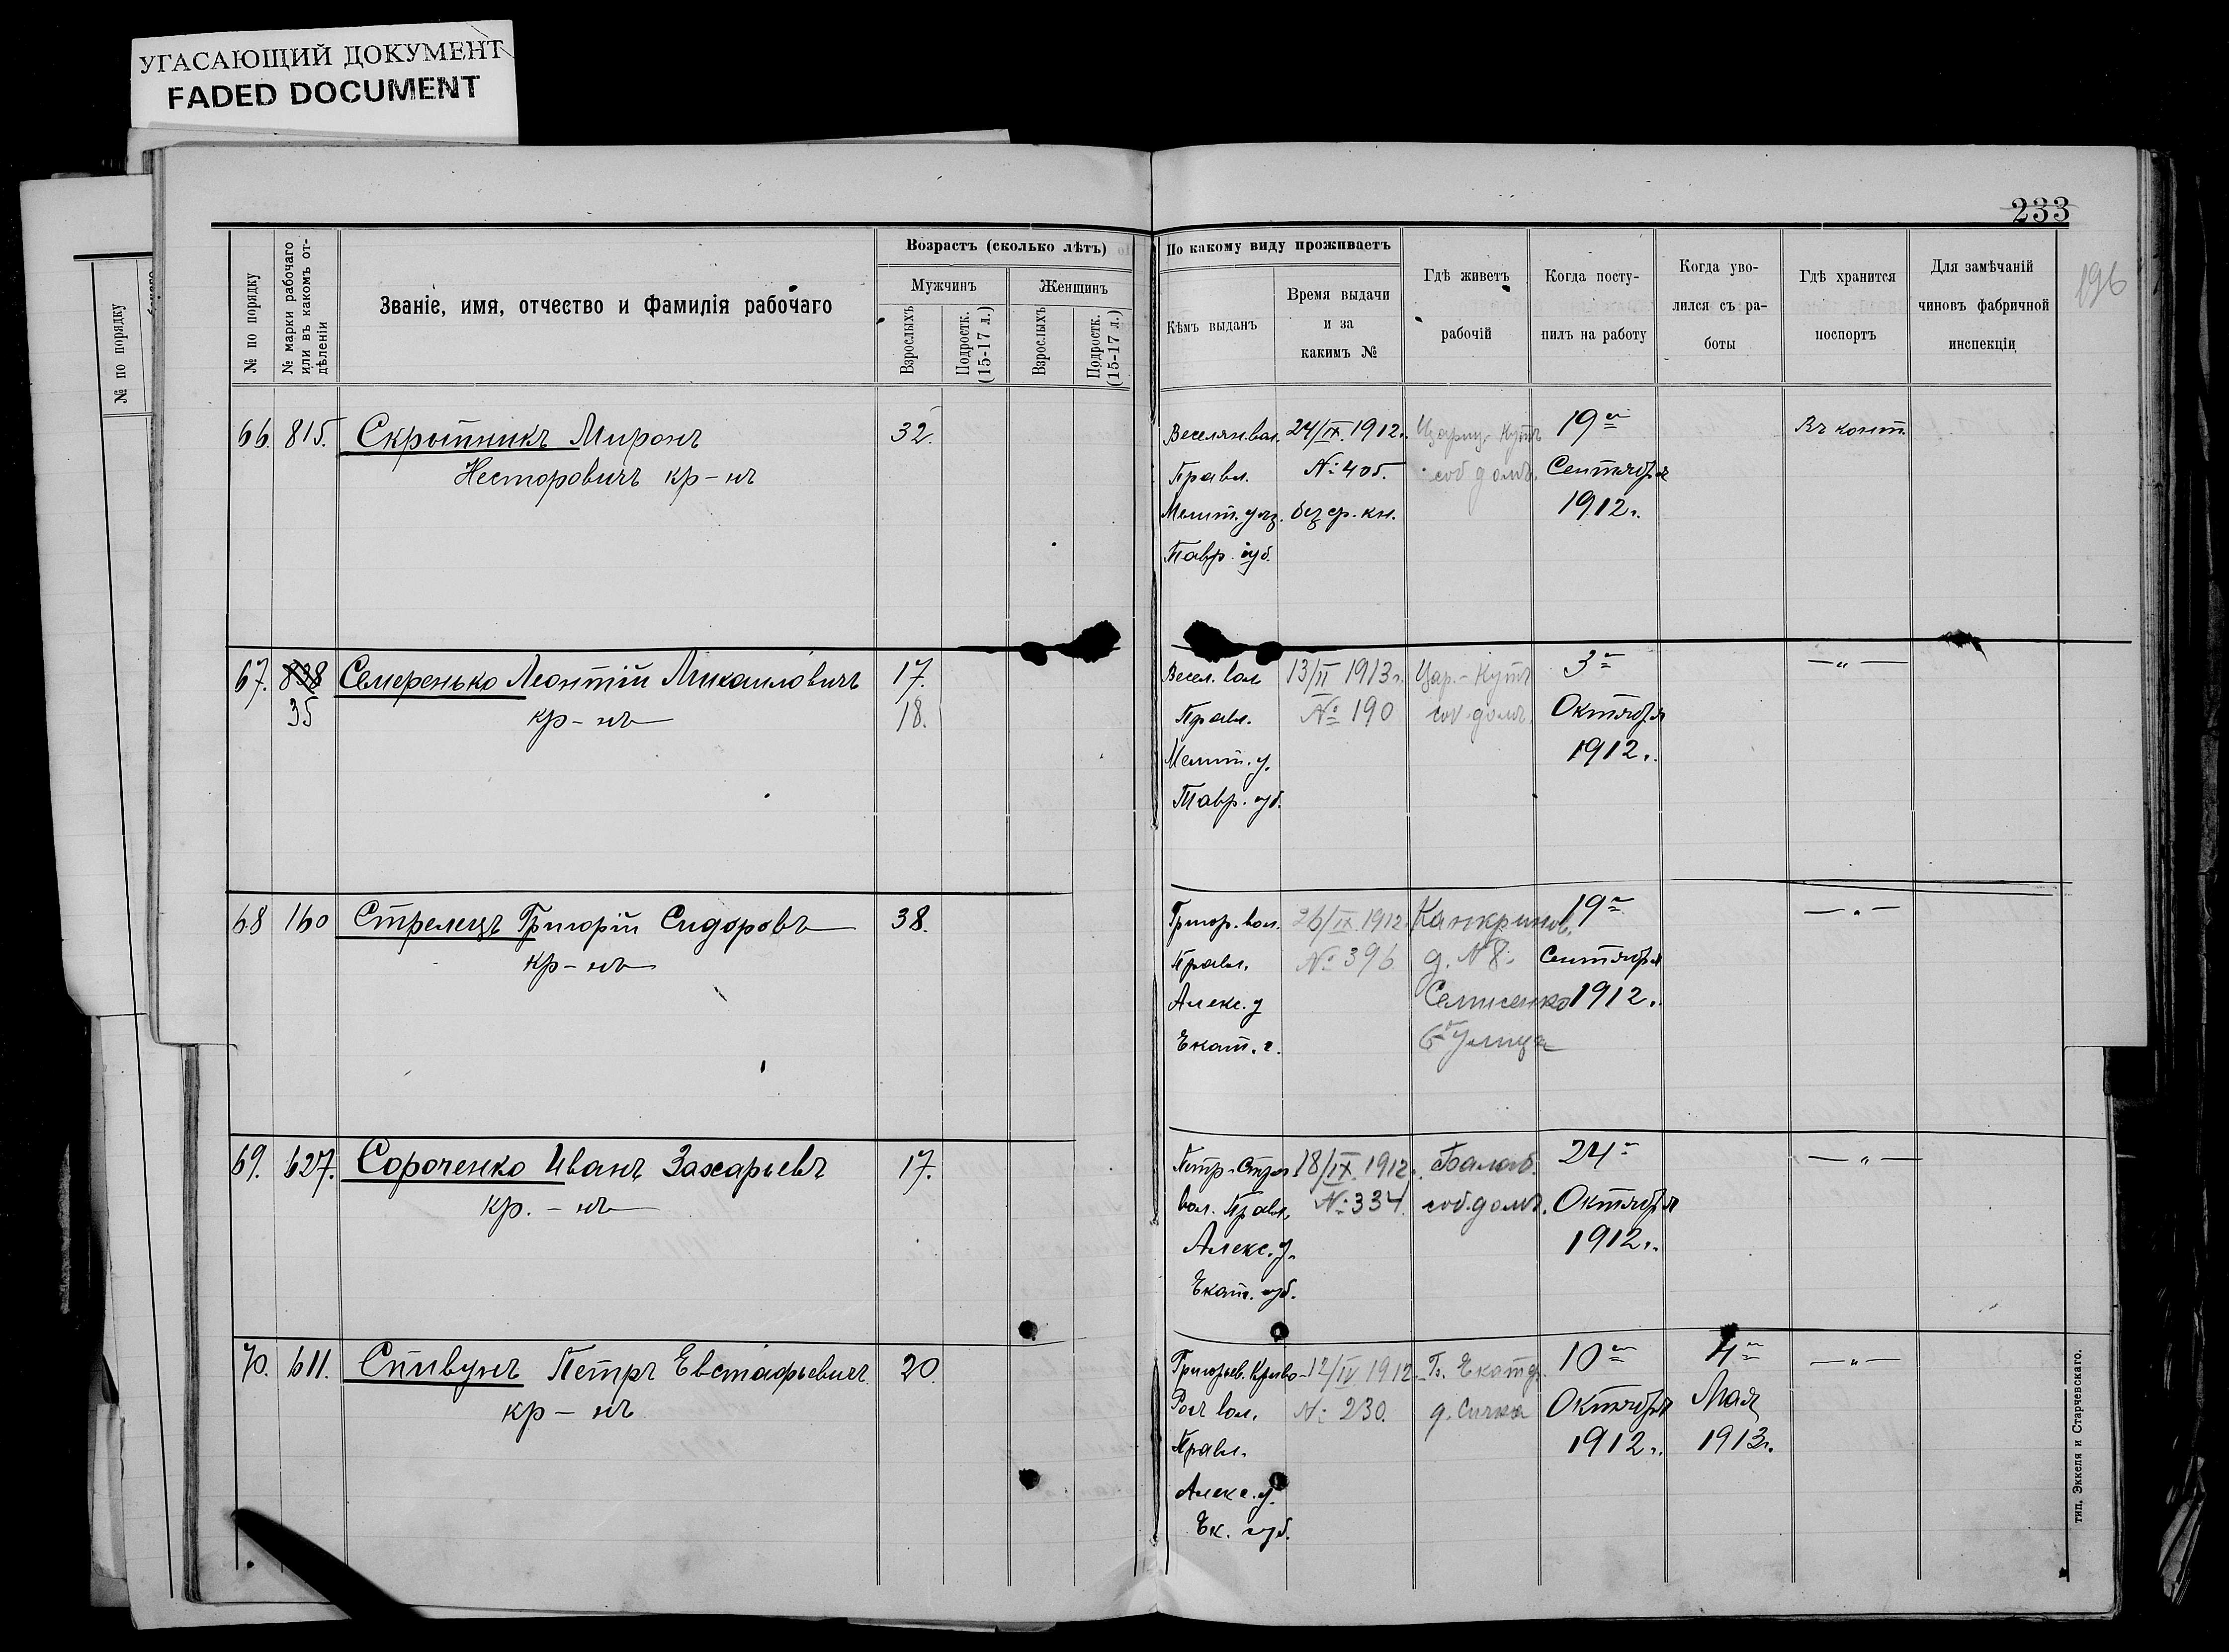 УГАСАЮЩИЙ ДОКУМЕНТ
FADED DOCUMENT
233
196
№ по порядку
№ по порядку
№ марки рабочаго
или въ какомъ от-
дѣленіи
Званіе, имя, отчество и фамилія рабочаго
Возрастъ (сколько лѣтъ)
Мужчинъ
Женщинъ
Взрослыхъ
Подростк.
(15-17 л.)
Взрослыхъ
Подростк.
(15-17 л.)
По какому виду проживаетъ
Кѣмъ выданъ
Время выдачи
и за
какимъ №
Гдѣ живетъ
рабочій
Когда посту-
пилъ на работу
Когда уво-
лился съ ра-
боты
Гдѣ хранится
поспортъ
Для замѣчаній
чиновъ фабричной
инспекціи
66. 815. Скрыпникъ Миронъ
Несторовичъ кр-нъ
32.
Веселян. вол.
Правл.
Мелит. уѣз.
Тавр. губ.
24/IX. 1912 г.
№ 405.
без ср. кн.
Цариц. Кутъ
соб домъ.
19го
Сентября
1912 г.
Въ конт.
67. 838 Семеренько Леонтій Михаиловичъ
35 кр-нъ
17.
18.
Весел. вол.
Правл.
Мелит. у.
Тавр. губ.
13/II 1913 г.
№ 190
Цар.-Кутъ
соб. домъ.
3го
Октября
1912 г.
— „ —
68 160 Стрелецъ Григорій Сидоровъ
кр-нъ
38.
Григор. вол.
Правл.
Алекс. у
Екат. г.
26/IX. 1912.
№ 396
Канкринов.
д. № 8.
Семисенко
6я улица
19го
Сентября
1912 г.
— „ —
69. 627. Сороченко Иванъ Захарьевъ
кр. - нъ
17.
вол. Правл.
Алекс. у.
Екат. губ.
18/IX. 1912 г.
№ 334.
Балаб.
соб. домъ.
24го
Октября
1912 г.
— „ —
70. 611. Спивунъ Петръ Евстафьевичъ
кр - нъ
20.
Григорьев. Криво-
Рож вол.
Правл.
Алекс. у.
Ек. губ.
12/IV 1912.
№ 230.
10го
Октября
1912 г.
4го
Мая
1913 г.
— „ —
тип. Эккеля и Старчевскаго.